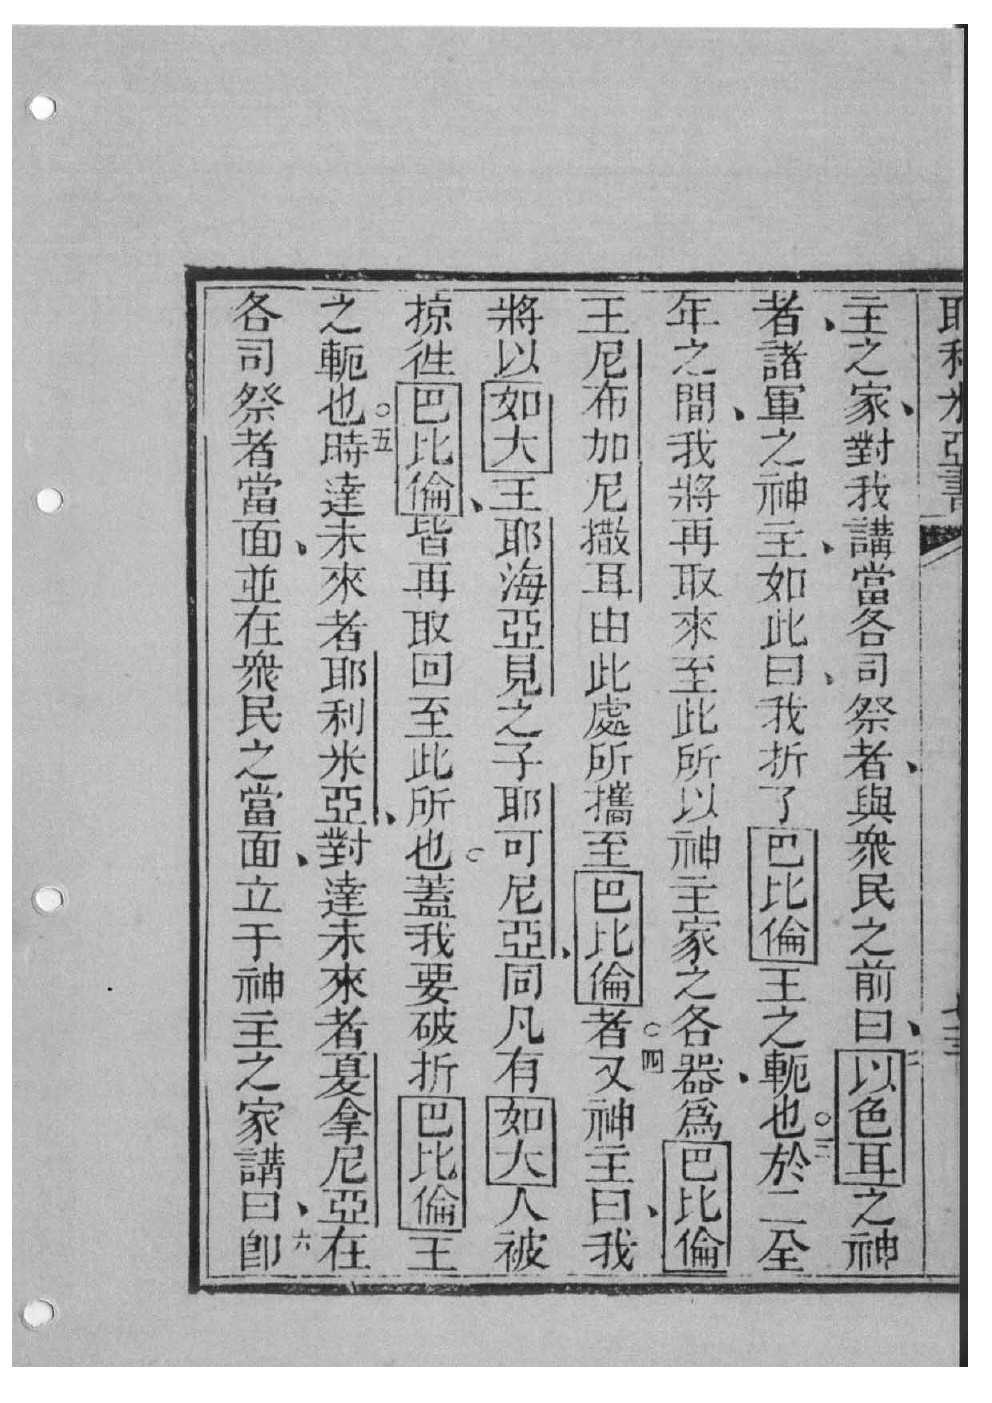 耶利米亞書
主之家、對我講當各司祭者、與衆民之前曰、二以色耳之神
者、諸軍之神主、如此曰、我折了巴比倫王之軛也○三於二全
年之間、我將再取來至此所以神主家之各器、爲巴比倫
王尼布加尼撒耳由此處所攜至巴比倫者○四又神主曰、我
將以如大王耶海亞見之子耶可尼亞、同凡有如大人被
掠徃巴比倫、皆再取回至此所也○蓋我要破折巴比倫王
之軛也○五時達未來者耶利米亞、對達未來者夏拿尼亞在
各司祭者當面、並在衆民之當面、立于神主之家講曰、六卽